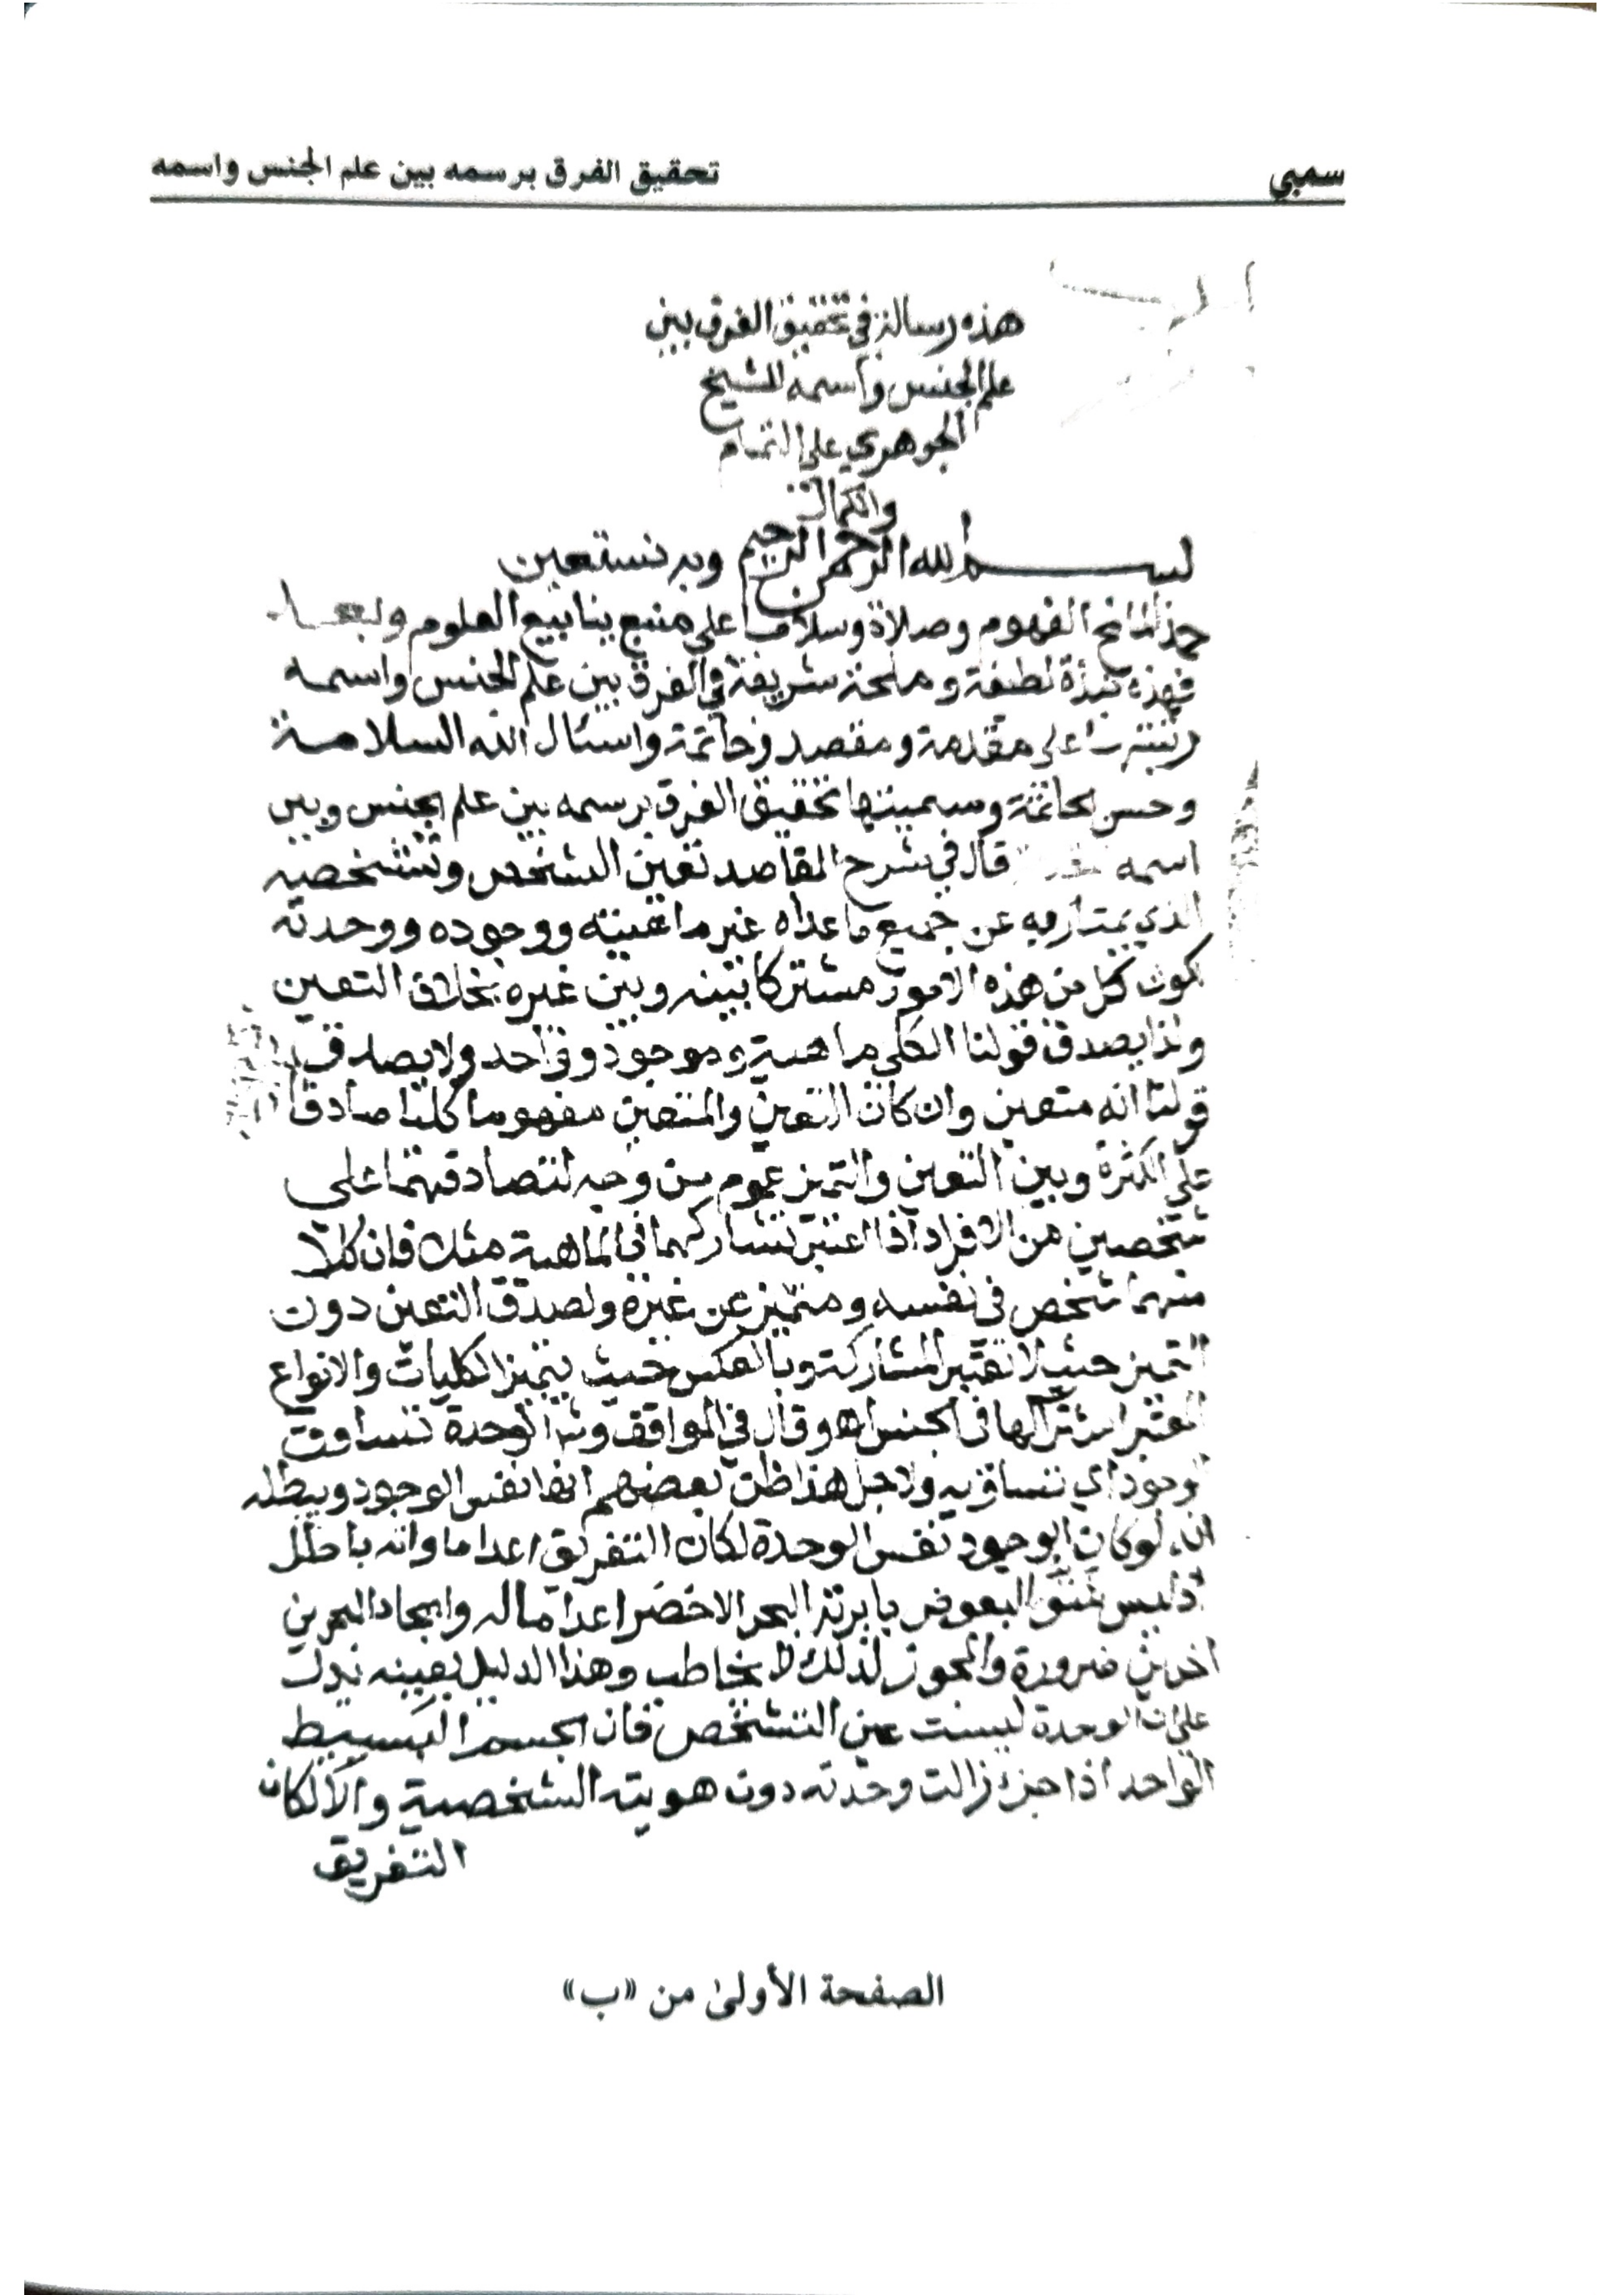 سمبي
تحقيق الفرق برسمه بين علم الجنس واسمه
هذه رسالة في تحقيق الفرق بين
علم الجنس واسمه للشيخ
الجوهري على التمام
والكمال
بسم الله الرحمن الرحيم وبه نستعين
حمدا لمانح الفهوم وصلاة وسلاما على منبع ينابيع العلوم وبعد
فهذه نبذة لطيفة وملحة شريفة في الفرق بين علم الجنس واسمه
رتبتها على مقدمة ومقصد وخاتمة واسئال الله السلامة
وحسن الخاتمة وسميتها تحقيق الفرق برسمه بين علم الجنس وبين
اسمه قال في شرح المقاصد تعين الشخص وتشخصه
الذي يمتاز به عن جميع ما عداه غير ماهيته ووجوده ووحدته
لكون كل من هذه الامور مشتركا بينه وبين غيره بخلاف التعين
ولذا يصدق قولنا الكلي ماهية وموجود وواحد ولا يصدق
قولنا انه متعين وان كان التعين والمتعين مفهوما كليا صادقا
على الكثرة وبين التعين والتميز عموم من وجه لتصادقهما على
شخصين من الافراد اذا اعتبر تشاركهما في الماهية مثلا فان كلا
منهما شخص في نفسه ومتميز عن غيره ولصدق التعين دون
التميز حيث لا تعتبر المشاركة وبالعكس حيث يتميز الكليات والانواع
المعتبر اشتراكها في الجنس اه وقال في المواقف وشرحه الوحدة تساوق
الوجود اي تساويه ولاجل هذا ظن بعضهم انها نفس الوجود ويبطله
انه لو كان الوجود نفس الوحدة لكان التفريق اعداما وانه باطل
اذ ليس شق البعوض بابرته البحر الاخضر اعداما له وايجادا لبحرين
اخرين ضرورة والمجوز لذلك لا يخاطب وهذا الدليل بعينه يدل
على ان الوحدة ليست عين التشخص فان الجسم البسيط
الواحد اذا جزئ زالت وحدته دون هويته الشخصية والا لكان
التفريق
الصفحة الأولى من «ب»